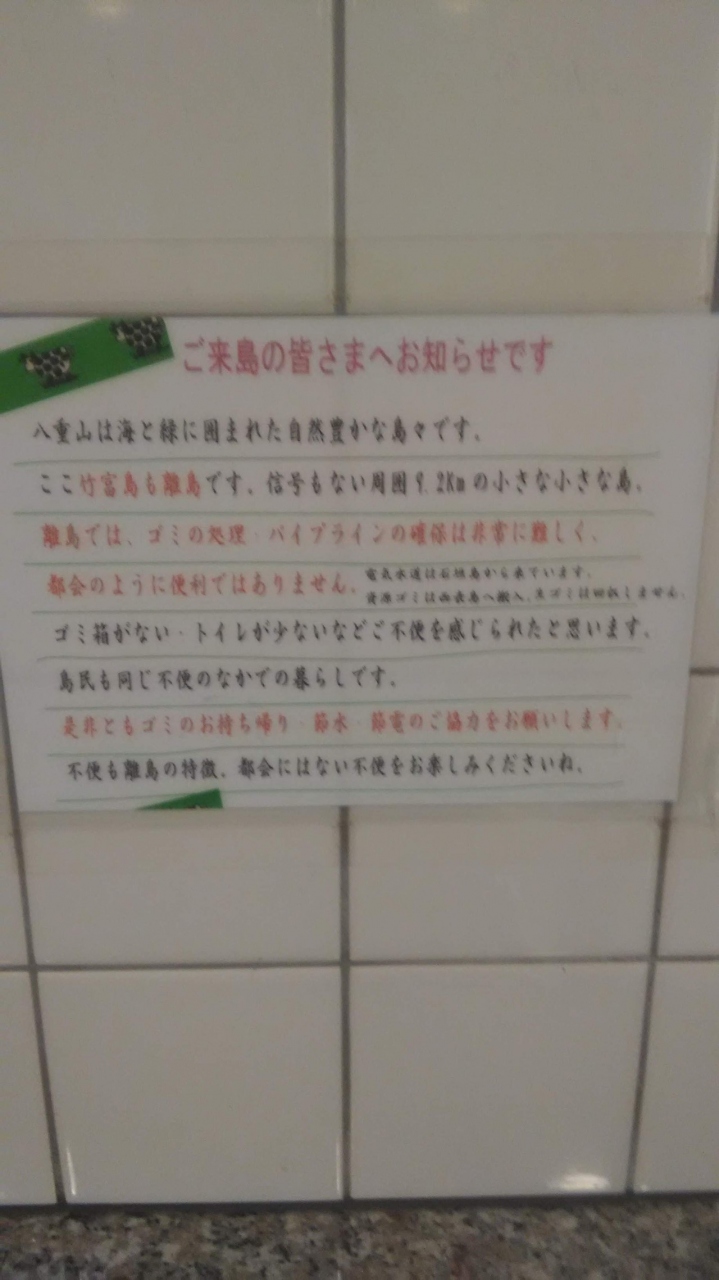 ご来島の皆さまへお知らせです
八重山は海と緑に囲まれた自然豊かな島々です。
ここ竹富島も離島です。信号もない周囲9.2Kmの小さな小さな島。
離島では、ゴミの処理・パイプラインの確保は非常に難しく、
都会のように便利ではありません。
電気水道は石垣島から来ています。
資源ゴミは西表島へ搬入。生ゴミは回収しません。
ゴミ箱がない・トイレが少ないなどご不便を感じられたと思います。
島民も同じ不便のなかでの暮らしです。
是非ともゴミのお持ち帰り・節水・節電のご協力をお願いします。
不便も離島の特徴。都会にはない不便をお楽しみくださいね。